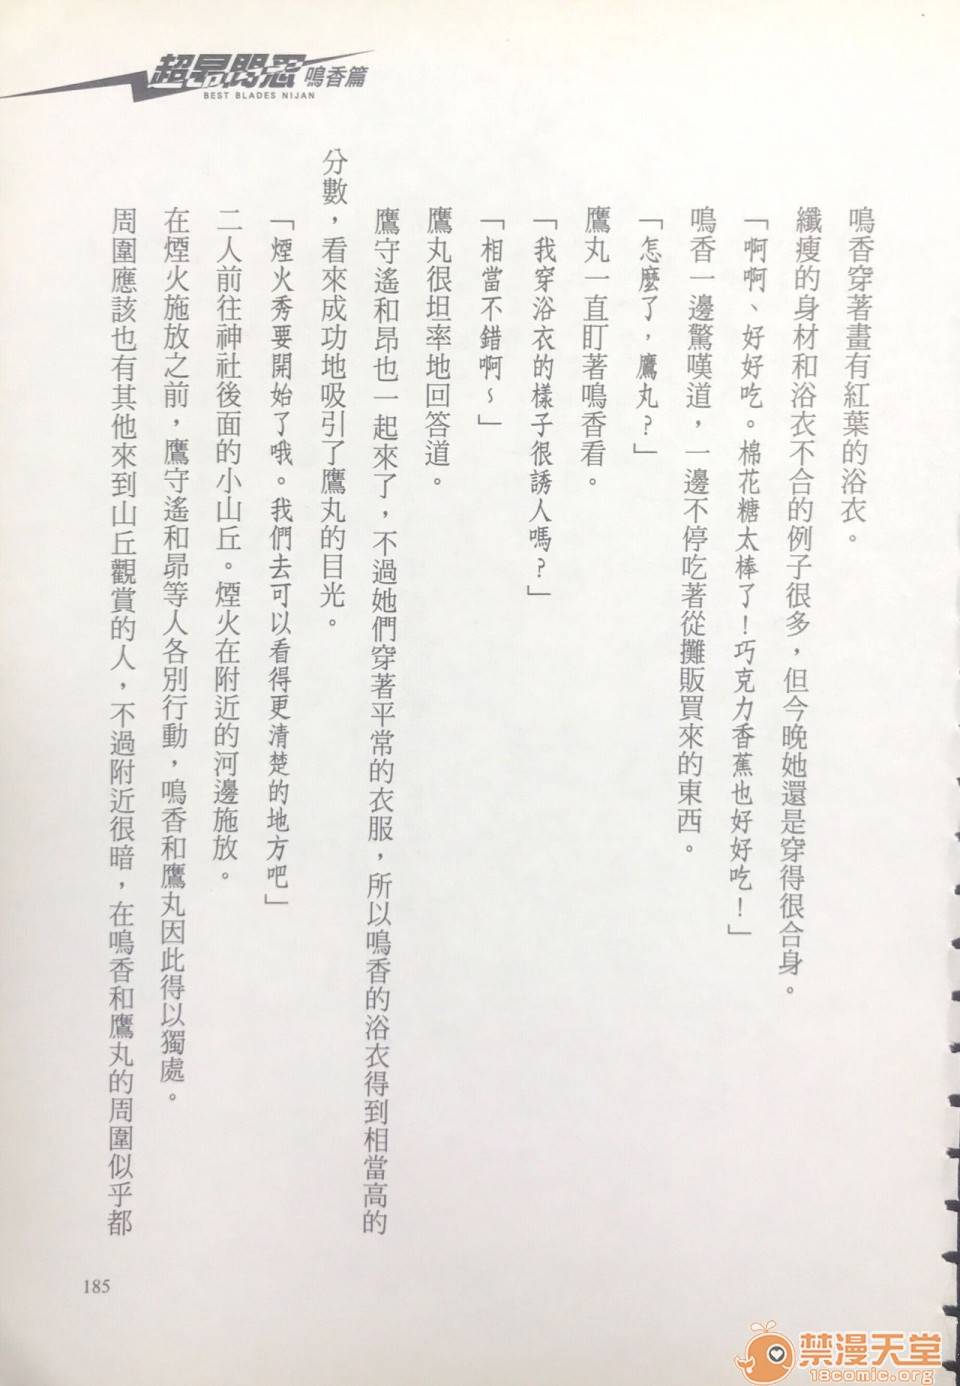 超昂閃忍 鳴香篇
BEST BLADES NIJAN
鳴香穿著畫有紅葉的浴衣。
纖瘦的身材和浴衣不合的例子很多，但今晚她還是穿得很合身。
「啊啊、好好吃。棉花糖太棒了！巧克力香蕉也好好吃！」
鳴香一邊驚嘆道，一邊不停吃著從攤販買來的東西。
「怎麼了，鷹丸？」
鷹丸一直盯著鳴香看。
「我穿浴衣的樣子很誘人嗎？」
「相當不錯啊～」
鷹丸很坦率地回答道。
鷹守遙和昂也一起來了，不過她們穿著平常的衣服，所以鳴香的浴衣得到相當高的
分數，看來成功地吸引了鷹丸的目光。
「煙火秀要開始了哦。我們去可以看得更清楚的地方吧」
二人前往神社後面的小山丘。煙火在附近的河邊施放。
在煙火施放之前，鷹守遙和昂等人各別行動，鳴香和鷹丸因此得以獨處。
周圍應該也有其他來到山丘觀賞的人，不過附近很暗，在鳴香和鷹丸的周圍似乎都
185
禁漫天堂
18comic.org